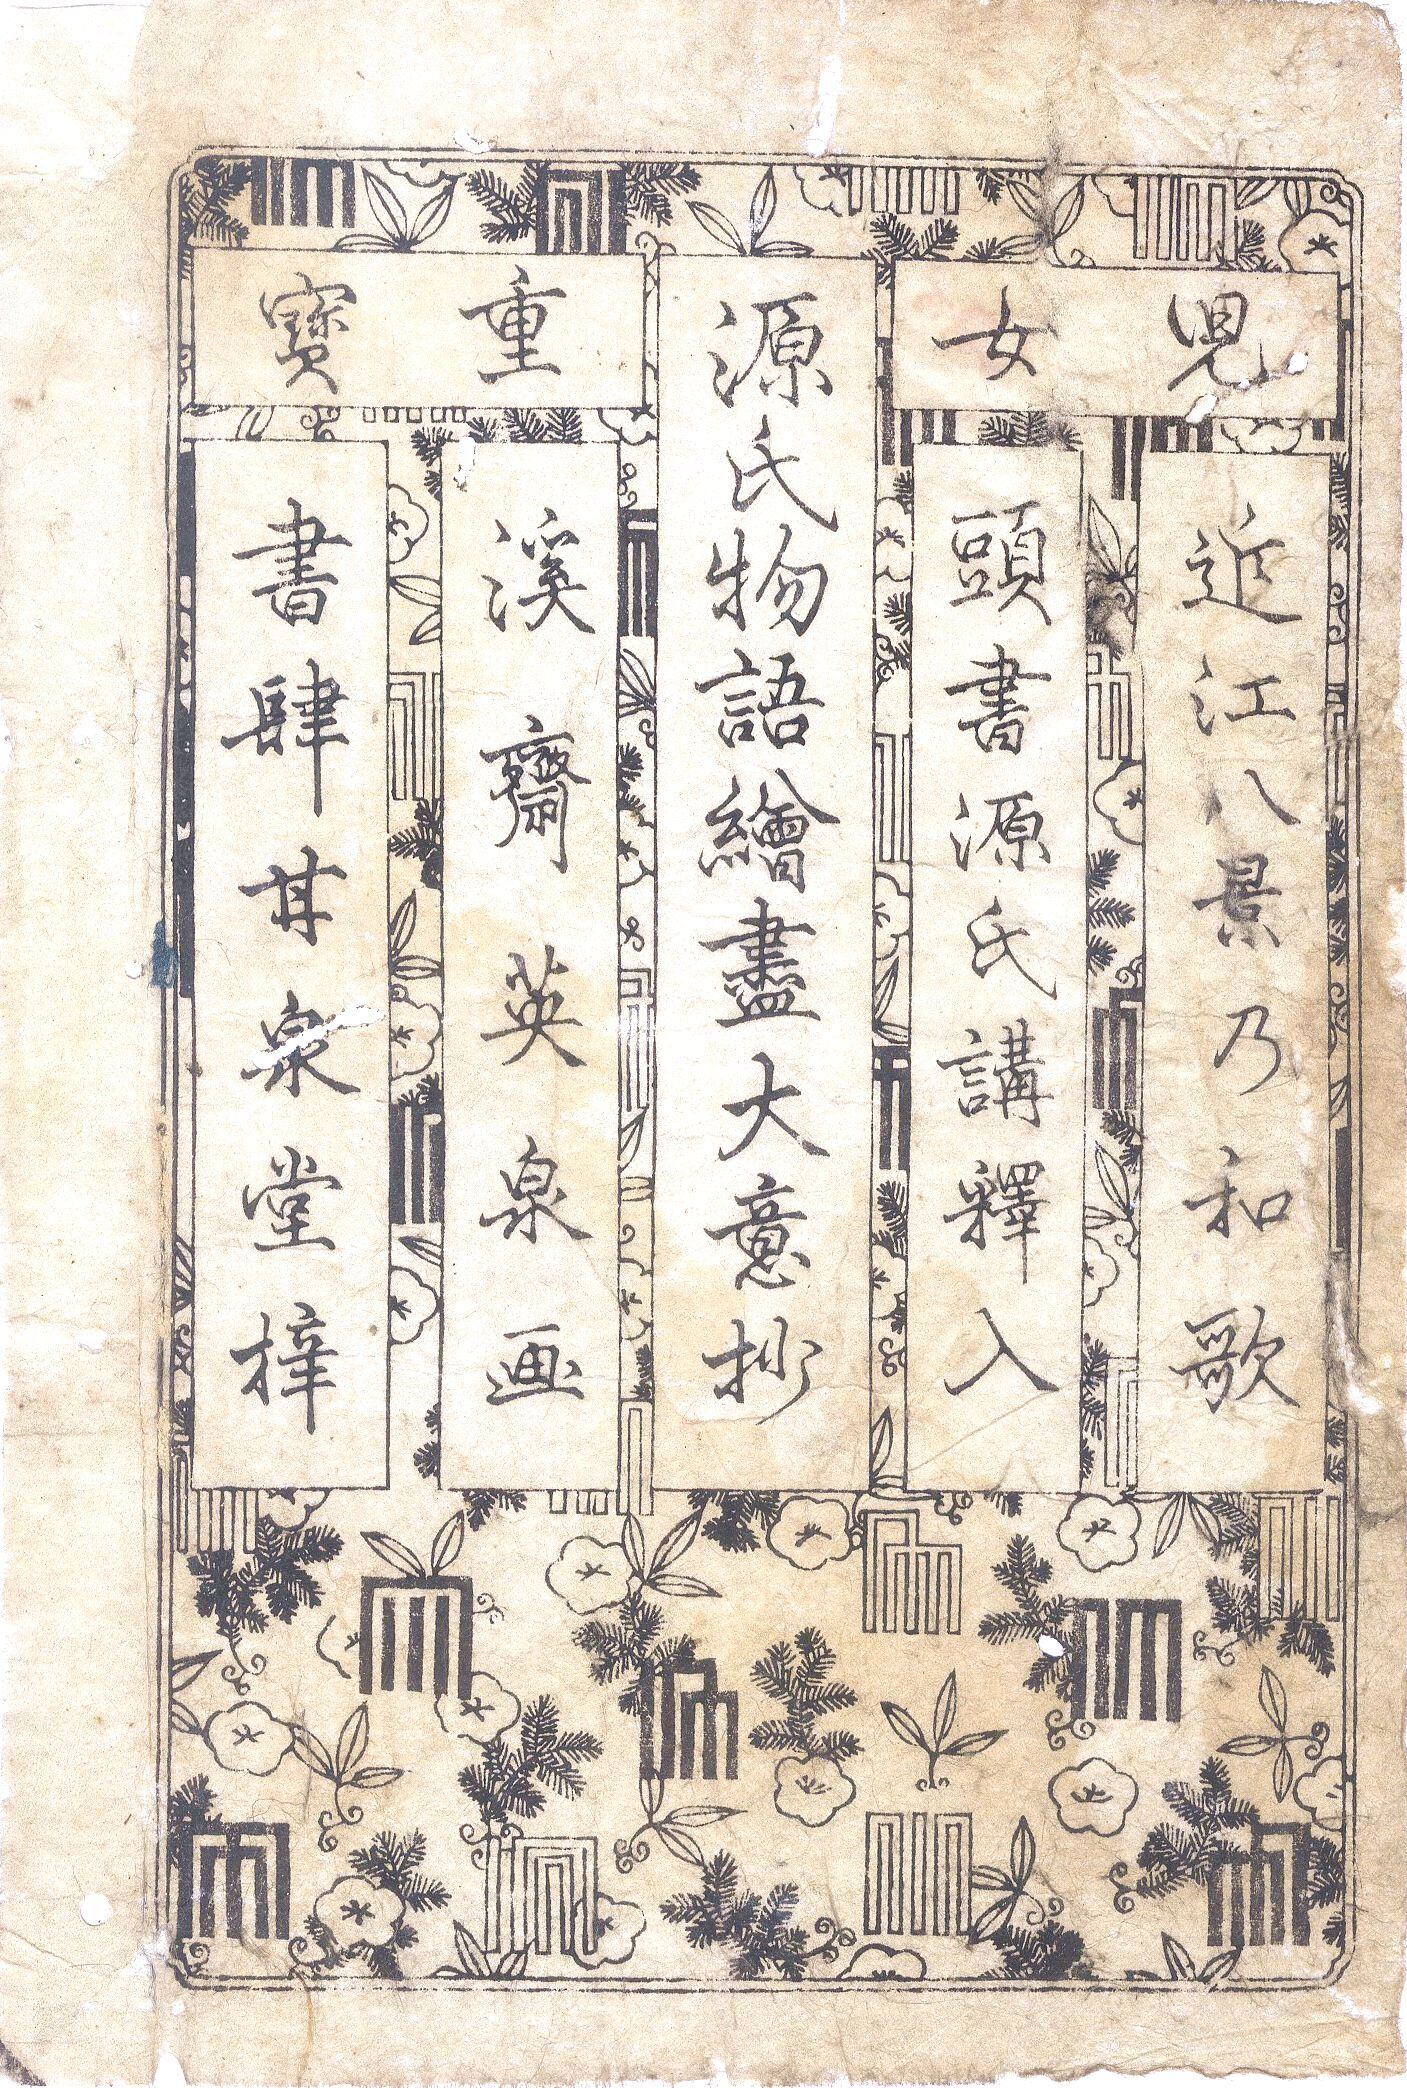 児女
近江八景乃和歌
頭書源氏講釋入
源氏物語繪盡大意抄
重寶
溪齋英泉画
書肆甘泉堂梓